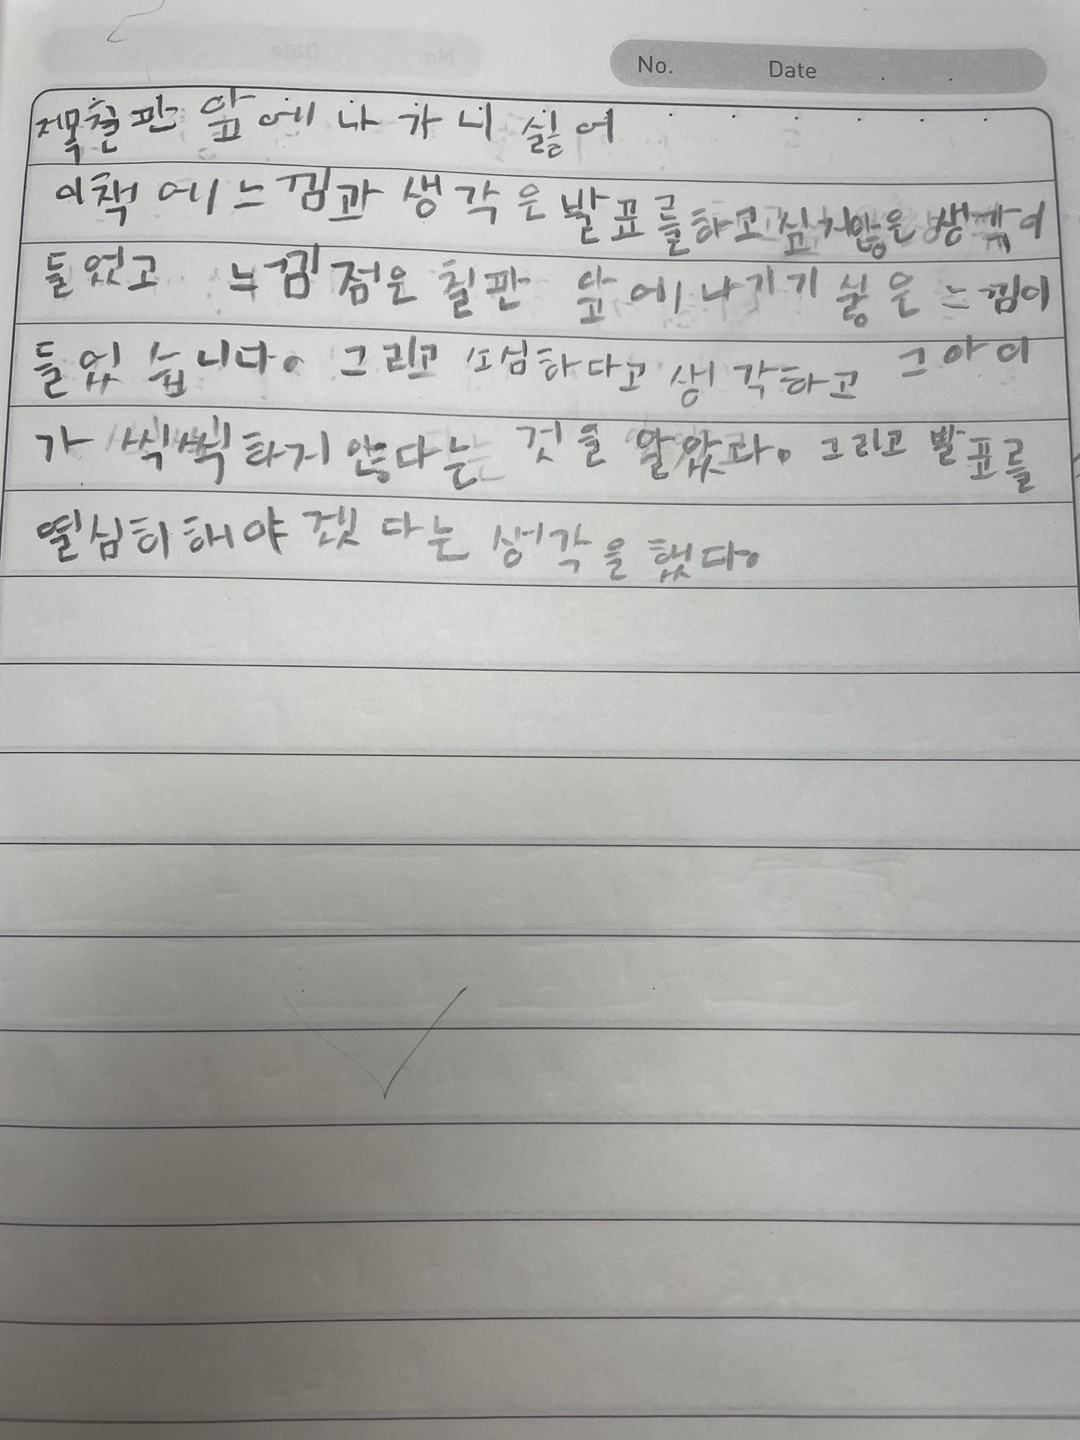 No. Date
제목 칠판 앞에 나가니 싫어
이책에 느낌과 생각은 발표를하고싶지않은 생각이
들었고 느낌점은 칠판 앞에 나기기 싫은 느낌이
들었습니다. 그리고 소심하다고 생각하고 그아이
가 씩씩하지 않다는 것을 알았다. 그리고 발표를
열심히해야 겠다는 생각을 했다.